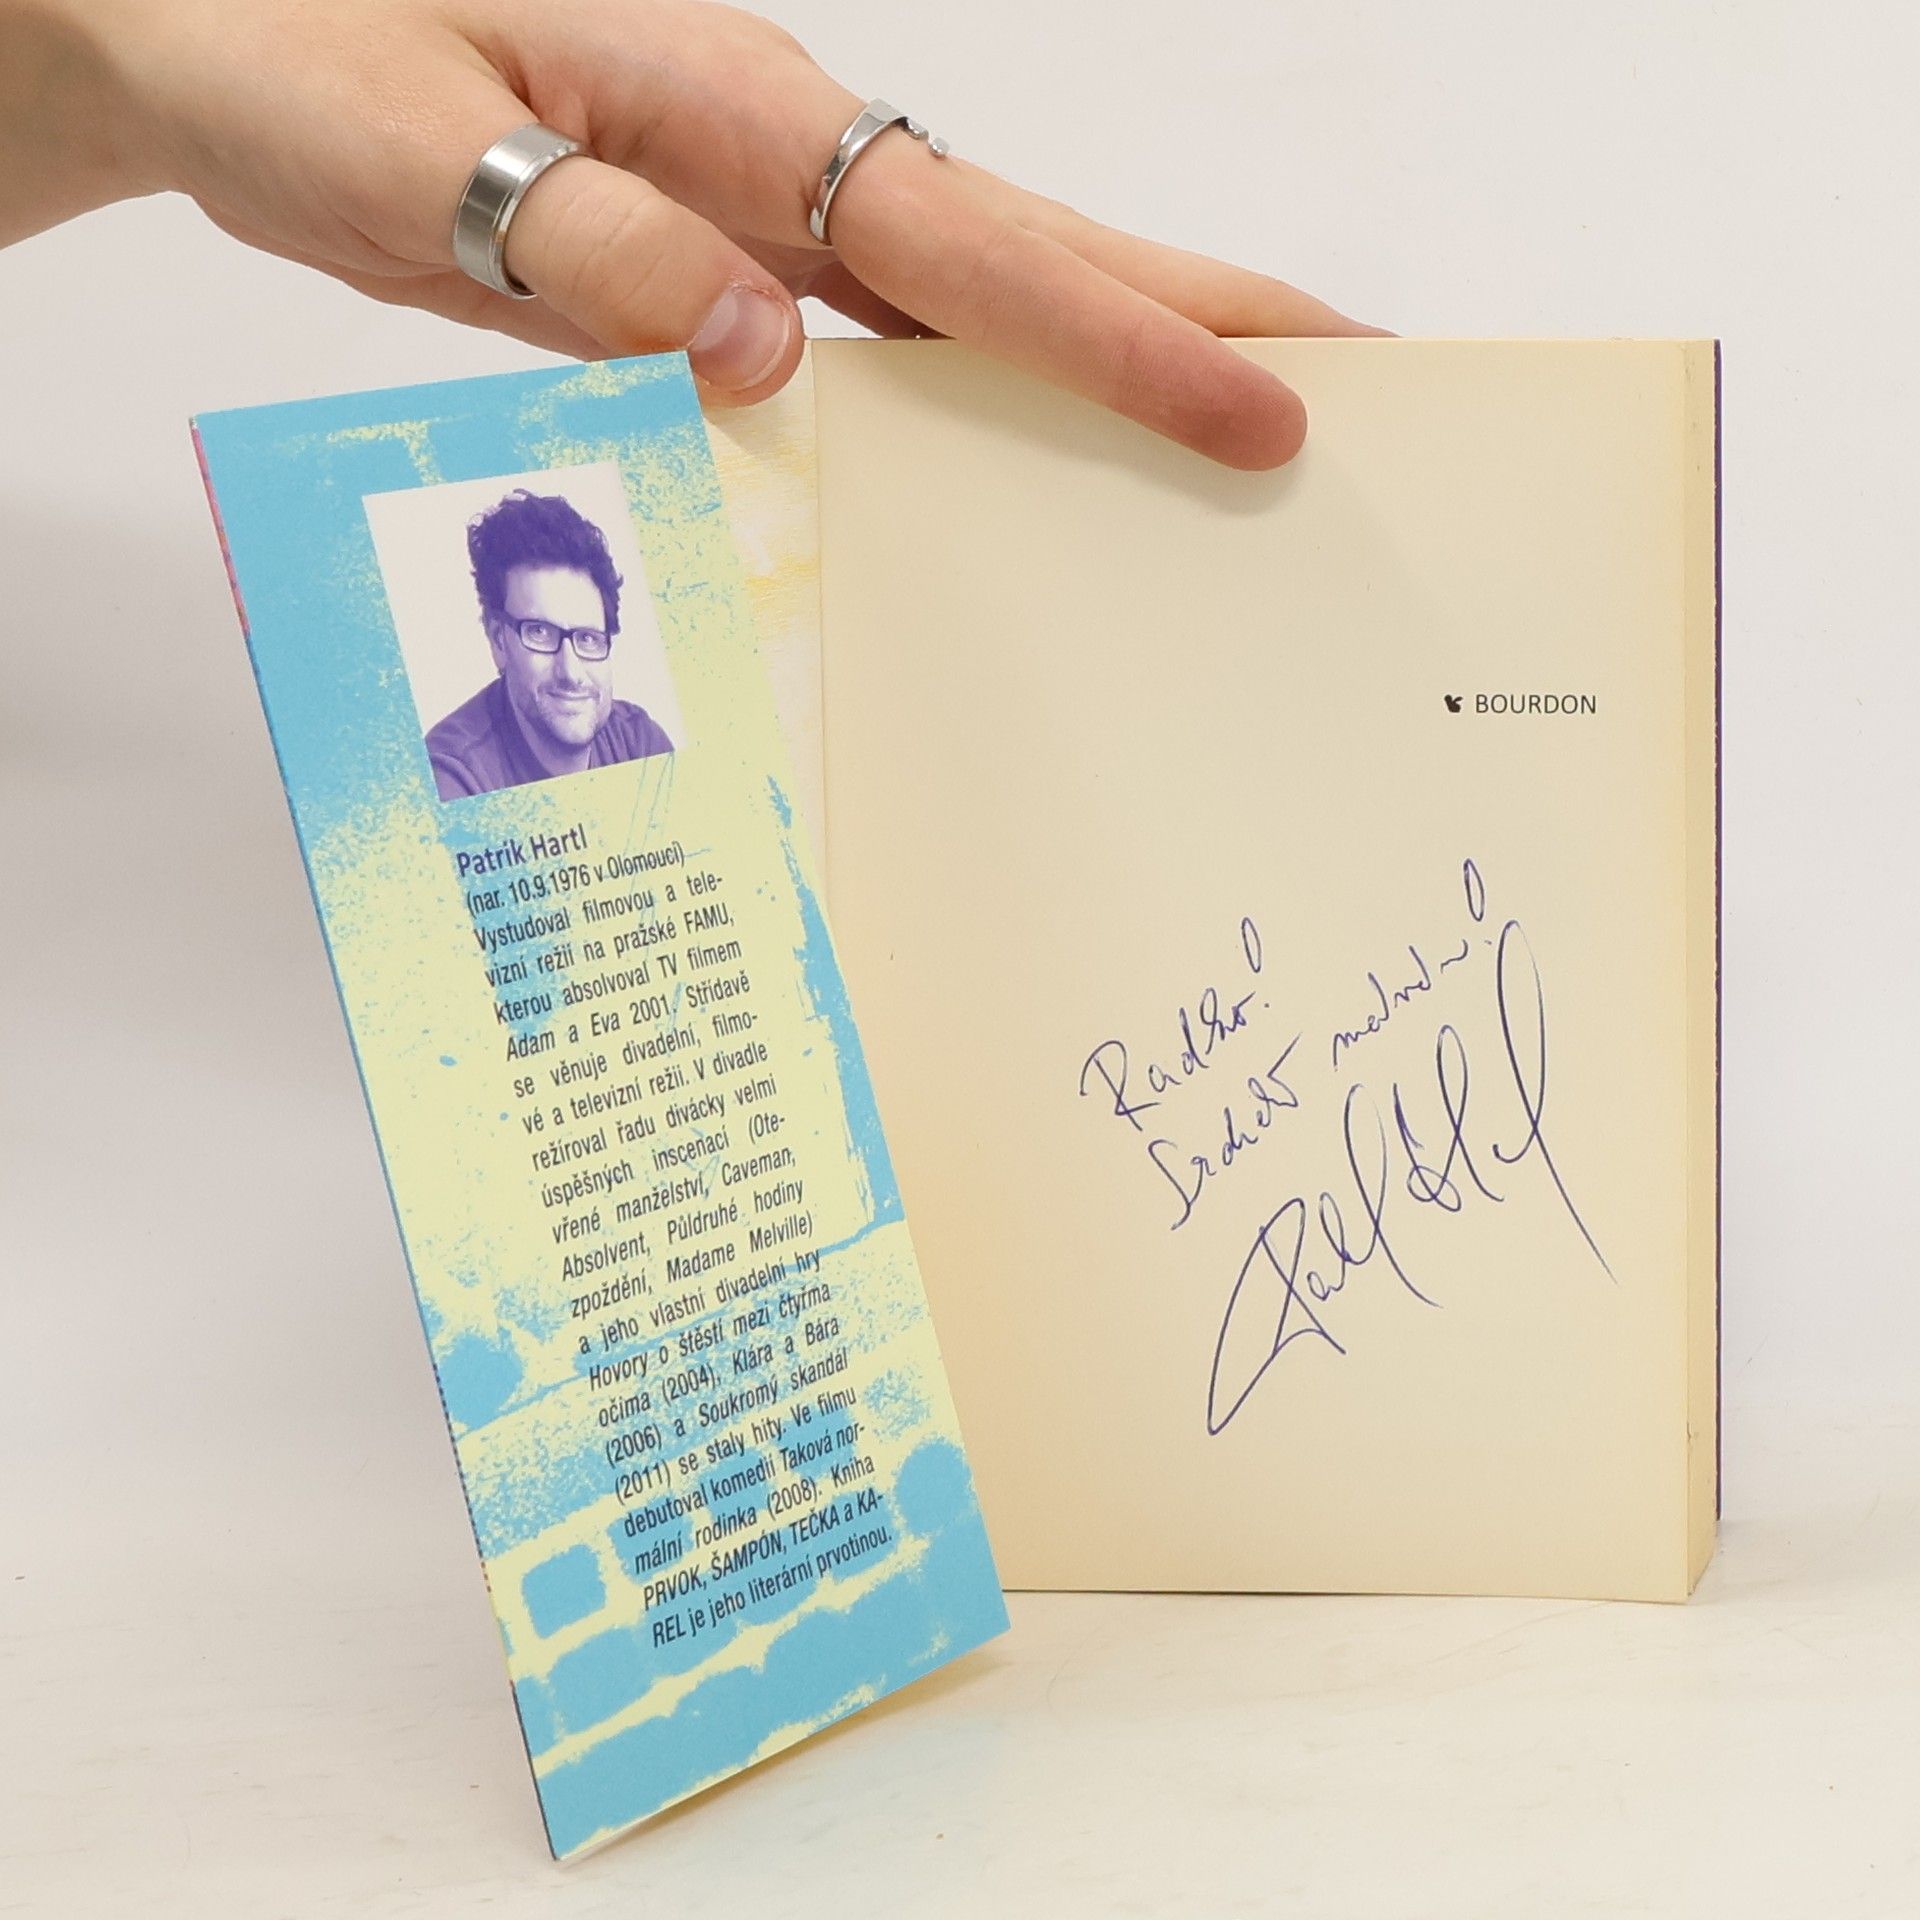 Patrik Hartl
(nar. 10.9.1976 v Olomouci)
Vystudoval filmovou a tele-
vizní režii na pražské FAMU,
kterou absolvoval TV filmem
Adam a Eva 2001. Střídavě
se věnuje divadelní, filmo-
vé a televizní režii. V divadle
režíroval řadu divácky velmi
úspěšných inscenací (Ote-
vřené manželství, Caveman,
Absolvent, Půldruhé hodiny
zpoždění, Madame Melville)
a jeho vlastní divadelní hry
Hovory o štěstí mezi čtyřma
očima (2004), Klára a Bára
(2006) a Soukromý skandál
(2011) se staly hity. Ve filmu
debutoval komedií Taková nor-
mální rodinka (2008). Kniha
PRVOK, ŠAMPÓN, TEČKA a KA-
REL je jeho literární prvotinou.
BOURDON
Radko!